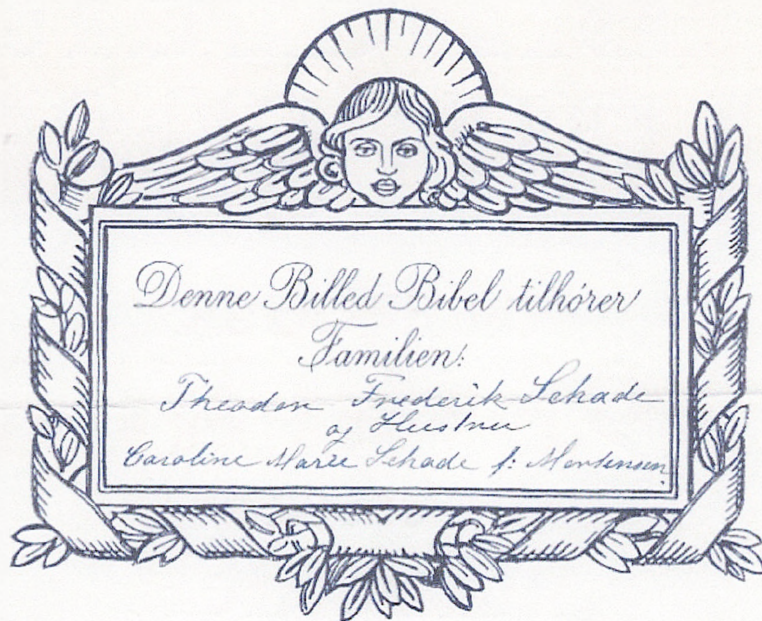 Denne Billed Bibel tilhórer
Familien:
Theodor Frederik Schade
og Hustru
Caroline Marie Schade f: Mortensen